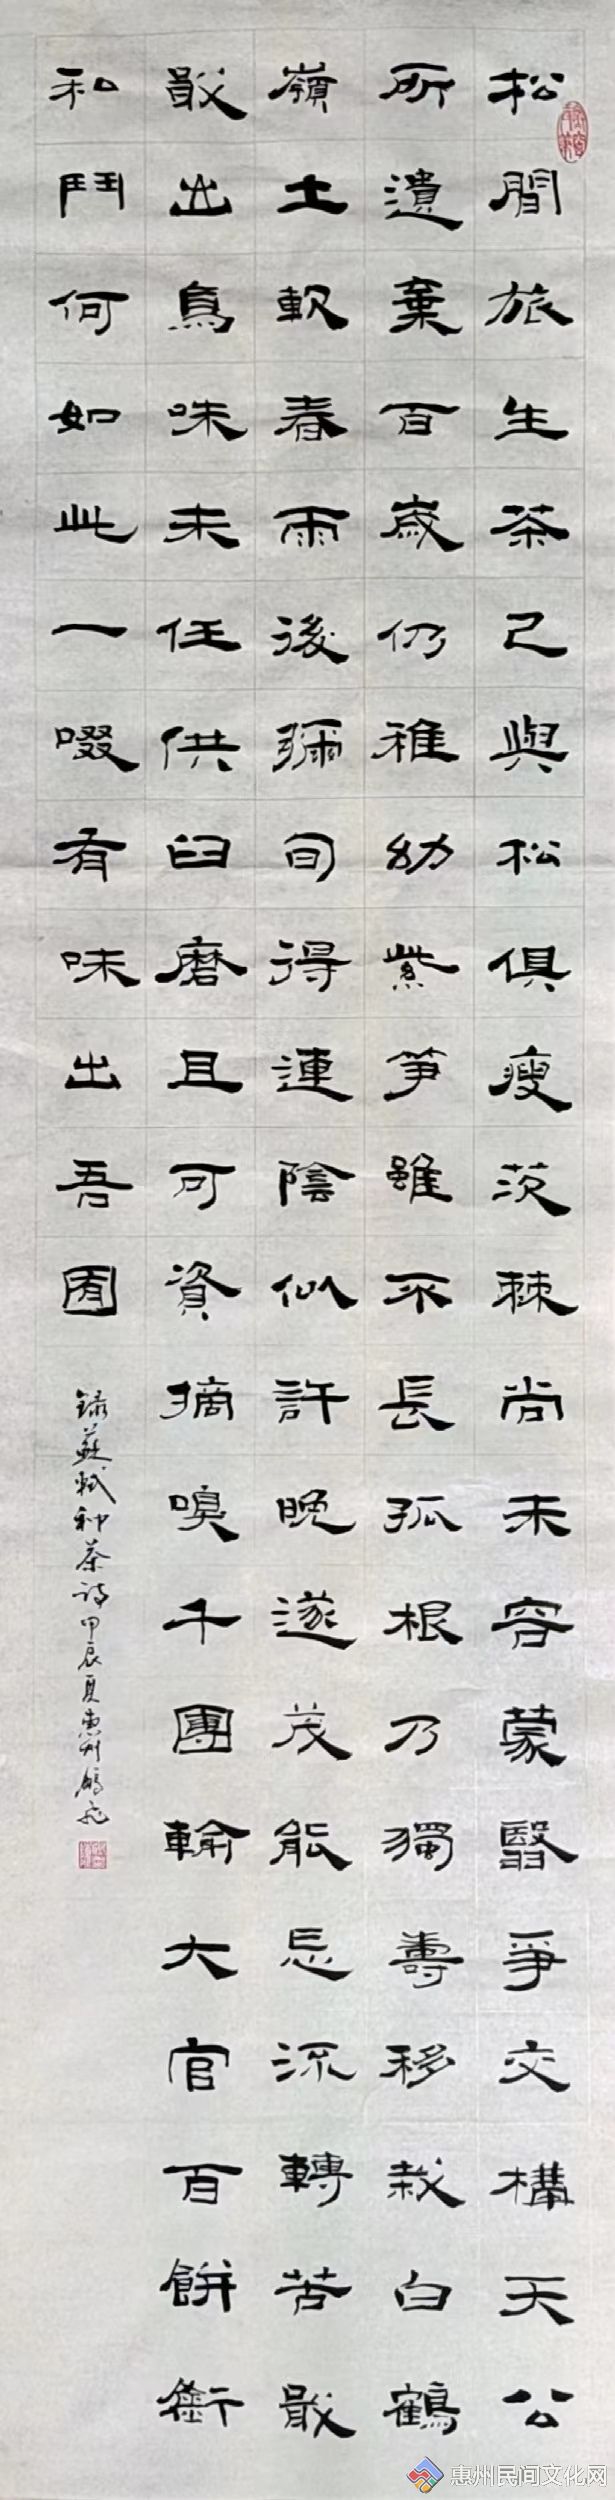 松間旅生茶已與松俱瘦茨棘尚未容蒙翳爭交構天公
所遺棄百歲仍稚幼紫笋雖不長孤根乃獨壽移栽白鶴
嶺土軟春雨後彌旬得連陰似許晚遂茂能忘流轉苦戢
戢出鳥味未任供臼磨且可資摘嗅千團輸大官百餅銜
和鬥何如此一啜有味出吾囿
錄蘇軾种茶詩甲辰夏惠州
惠州民间文化网